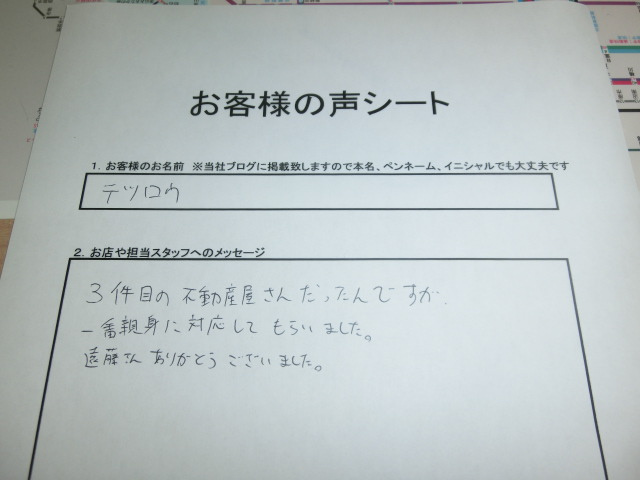 お客様の声シート
1. お客様のお名前 ※当社ブログに掲載致しますので本名、ペンネーム、イニシャルでも大丈夫です
テツロウ
2. お店や担当スタッフへのメッセージ
3件目の不動産屋さんだったんですが、
一番親身に対応してもらいました。
遠藤さんありがとうございました。